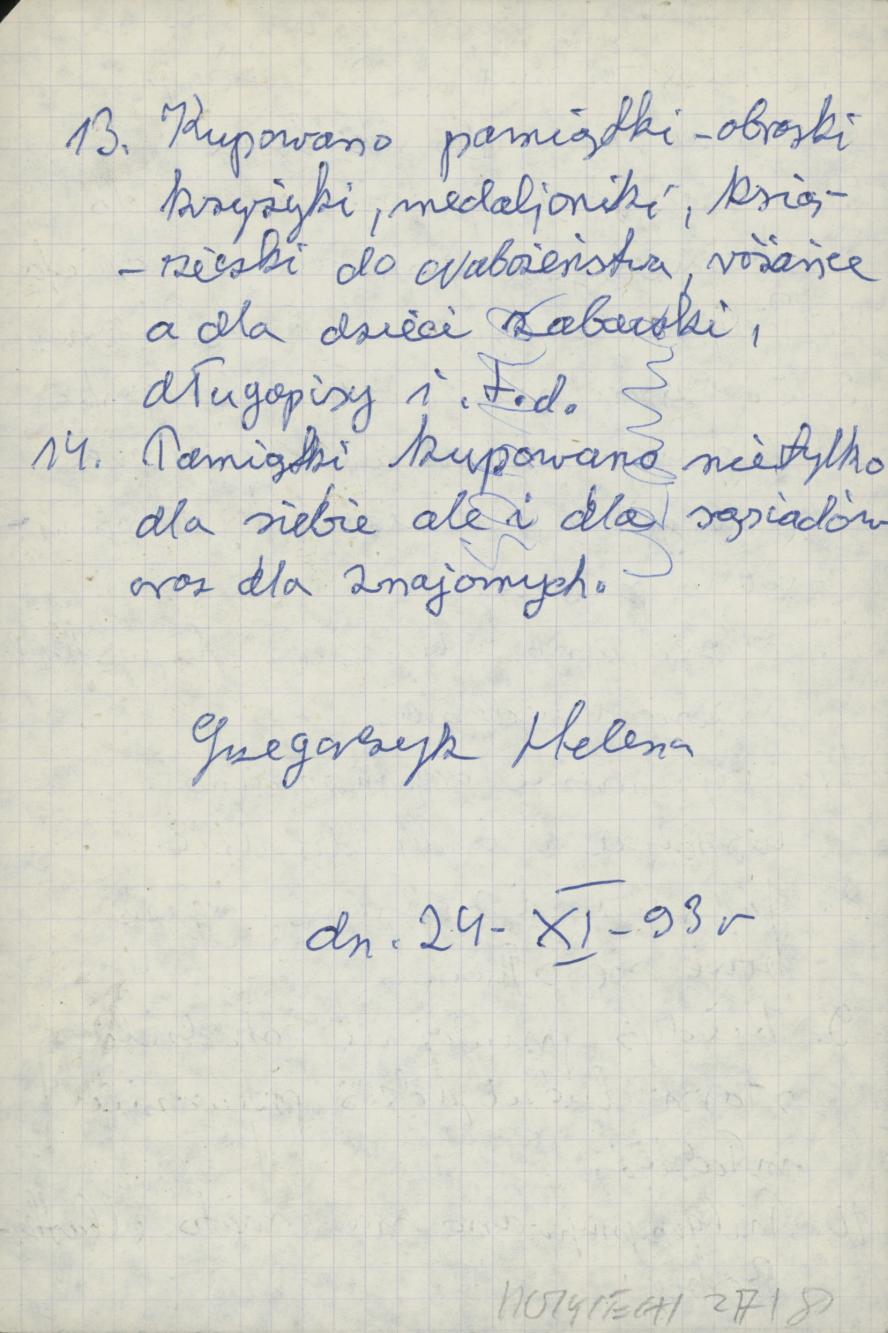 13. Kupowano pamiątki - obrazki
krzyżyki, medaljoniki, książ-
- żeczki do nabożeństwa, różańce
a dla dzieci zabawki,
długopisy i .t.d.
14. Pamiątki kupowano nietylko
dla siebie ale i dla sąsiadów
oraz dla znajomych.
Grzegorczyk Helena
dn. 24- XI - 93 r